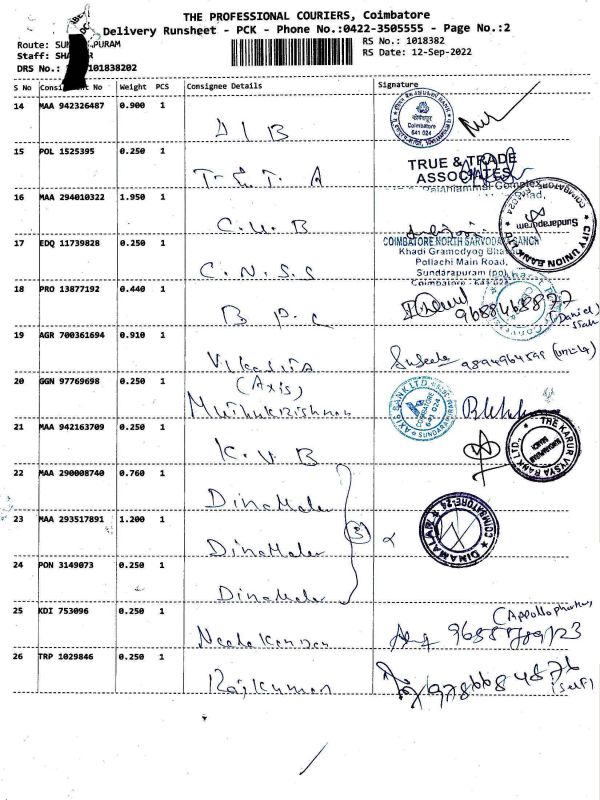 THE PROFESSIONAL COURIERS, Coimbatore
Delivery Runsheet - PCK - Phone No.:0422-3505555 - Page No.:2
Route: PURAM
RS No.: 1018382
Staff:
RS Date: 12-Sep-2022
DRS No.: 101838202
S No Consignment No Weight PCS Consignee Details Signature
14 MAA 942326487 0.900 1
D I B
Coimbatore
641 024
15 POL 1525395 0.250 1
T. E. T. A
TRUE & TRADE
ASSOCIATES
16 MAA 294010322 1.950 1
C. U. B
CITY UNION BANK
Sundarapuram
17 EDQ 11739828 0.250 1
C. N. S. S
COIMBATORE NORTH SARVODAYA SANGH
Khadi Gramodyog Bhavan
Pollachi Main Road,
Sundarapuram (po)
Coimbatore - 641 024
18 PRO 13877192 0.440 1
B P. C
9688465877
(Daniel)
19 AGR 700361694 0.910 1
Suseela 9894964595
20 GGN 97769698 0.250 1
(Axis)
Muthukrishnan
AXIS BANK LTD.
COIMBATORE
641 024
SUNDARAPURAM
21 MAA 942163709 0.250 1
K. V B
THE KARUR VYSYA BANK LTD.,
22 MAA 290008740 0.760 1
Dinamalar
23 MAA 293517891 1.200 1
Dinamalar
(3)
DINAMALAR
COIMBATORE-24
24 PON 3149073 0.250 1
Dinamalar
25 KDI 753096 0.250 1
Neelakandan
26 TRP 1029846 0.250 1
Rajkumar
9786684876
(Self)